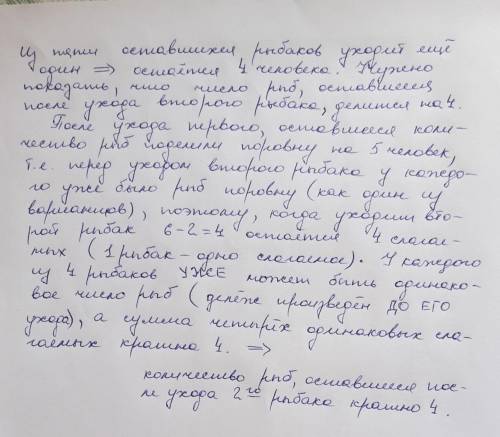 Из пяти оставшихся рыбаков уходит ещё
один ⇒ остаётся 4 человека. Нужно
показать, что число рыб, оставшееся
после ухода второго рыбака, делится на 4.
После ухода первого, оставшееся коли-
чество рыб поделили поровну на 5 человек,
т.е. перед уходом второго рыбака у каждо-
го уже было рыб поровну (как один из
вариантов), поэтому, когда уходит вто-
рой рыбак 6-2=4 остаётся 4 слагае-
мых (1 рыбак - одно слагаемое). У каждого
из 4 рыбаков УЖЕ может быть одинако-
вое число рыб (делёж произведён ДО ЕГО
ухода), а сумма четырёх одинаковых сла-
гаемых кратна 4. ⇒
количество рыб, оставшееся пос-
ле ухода 2го рыбака кратно 4.